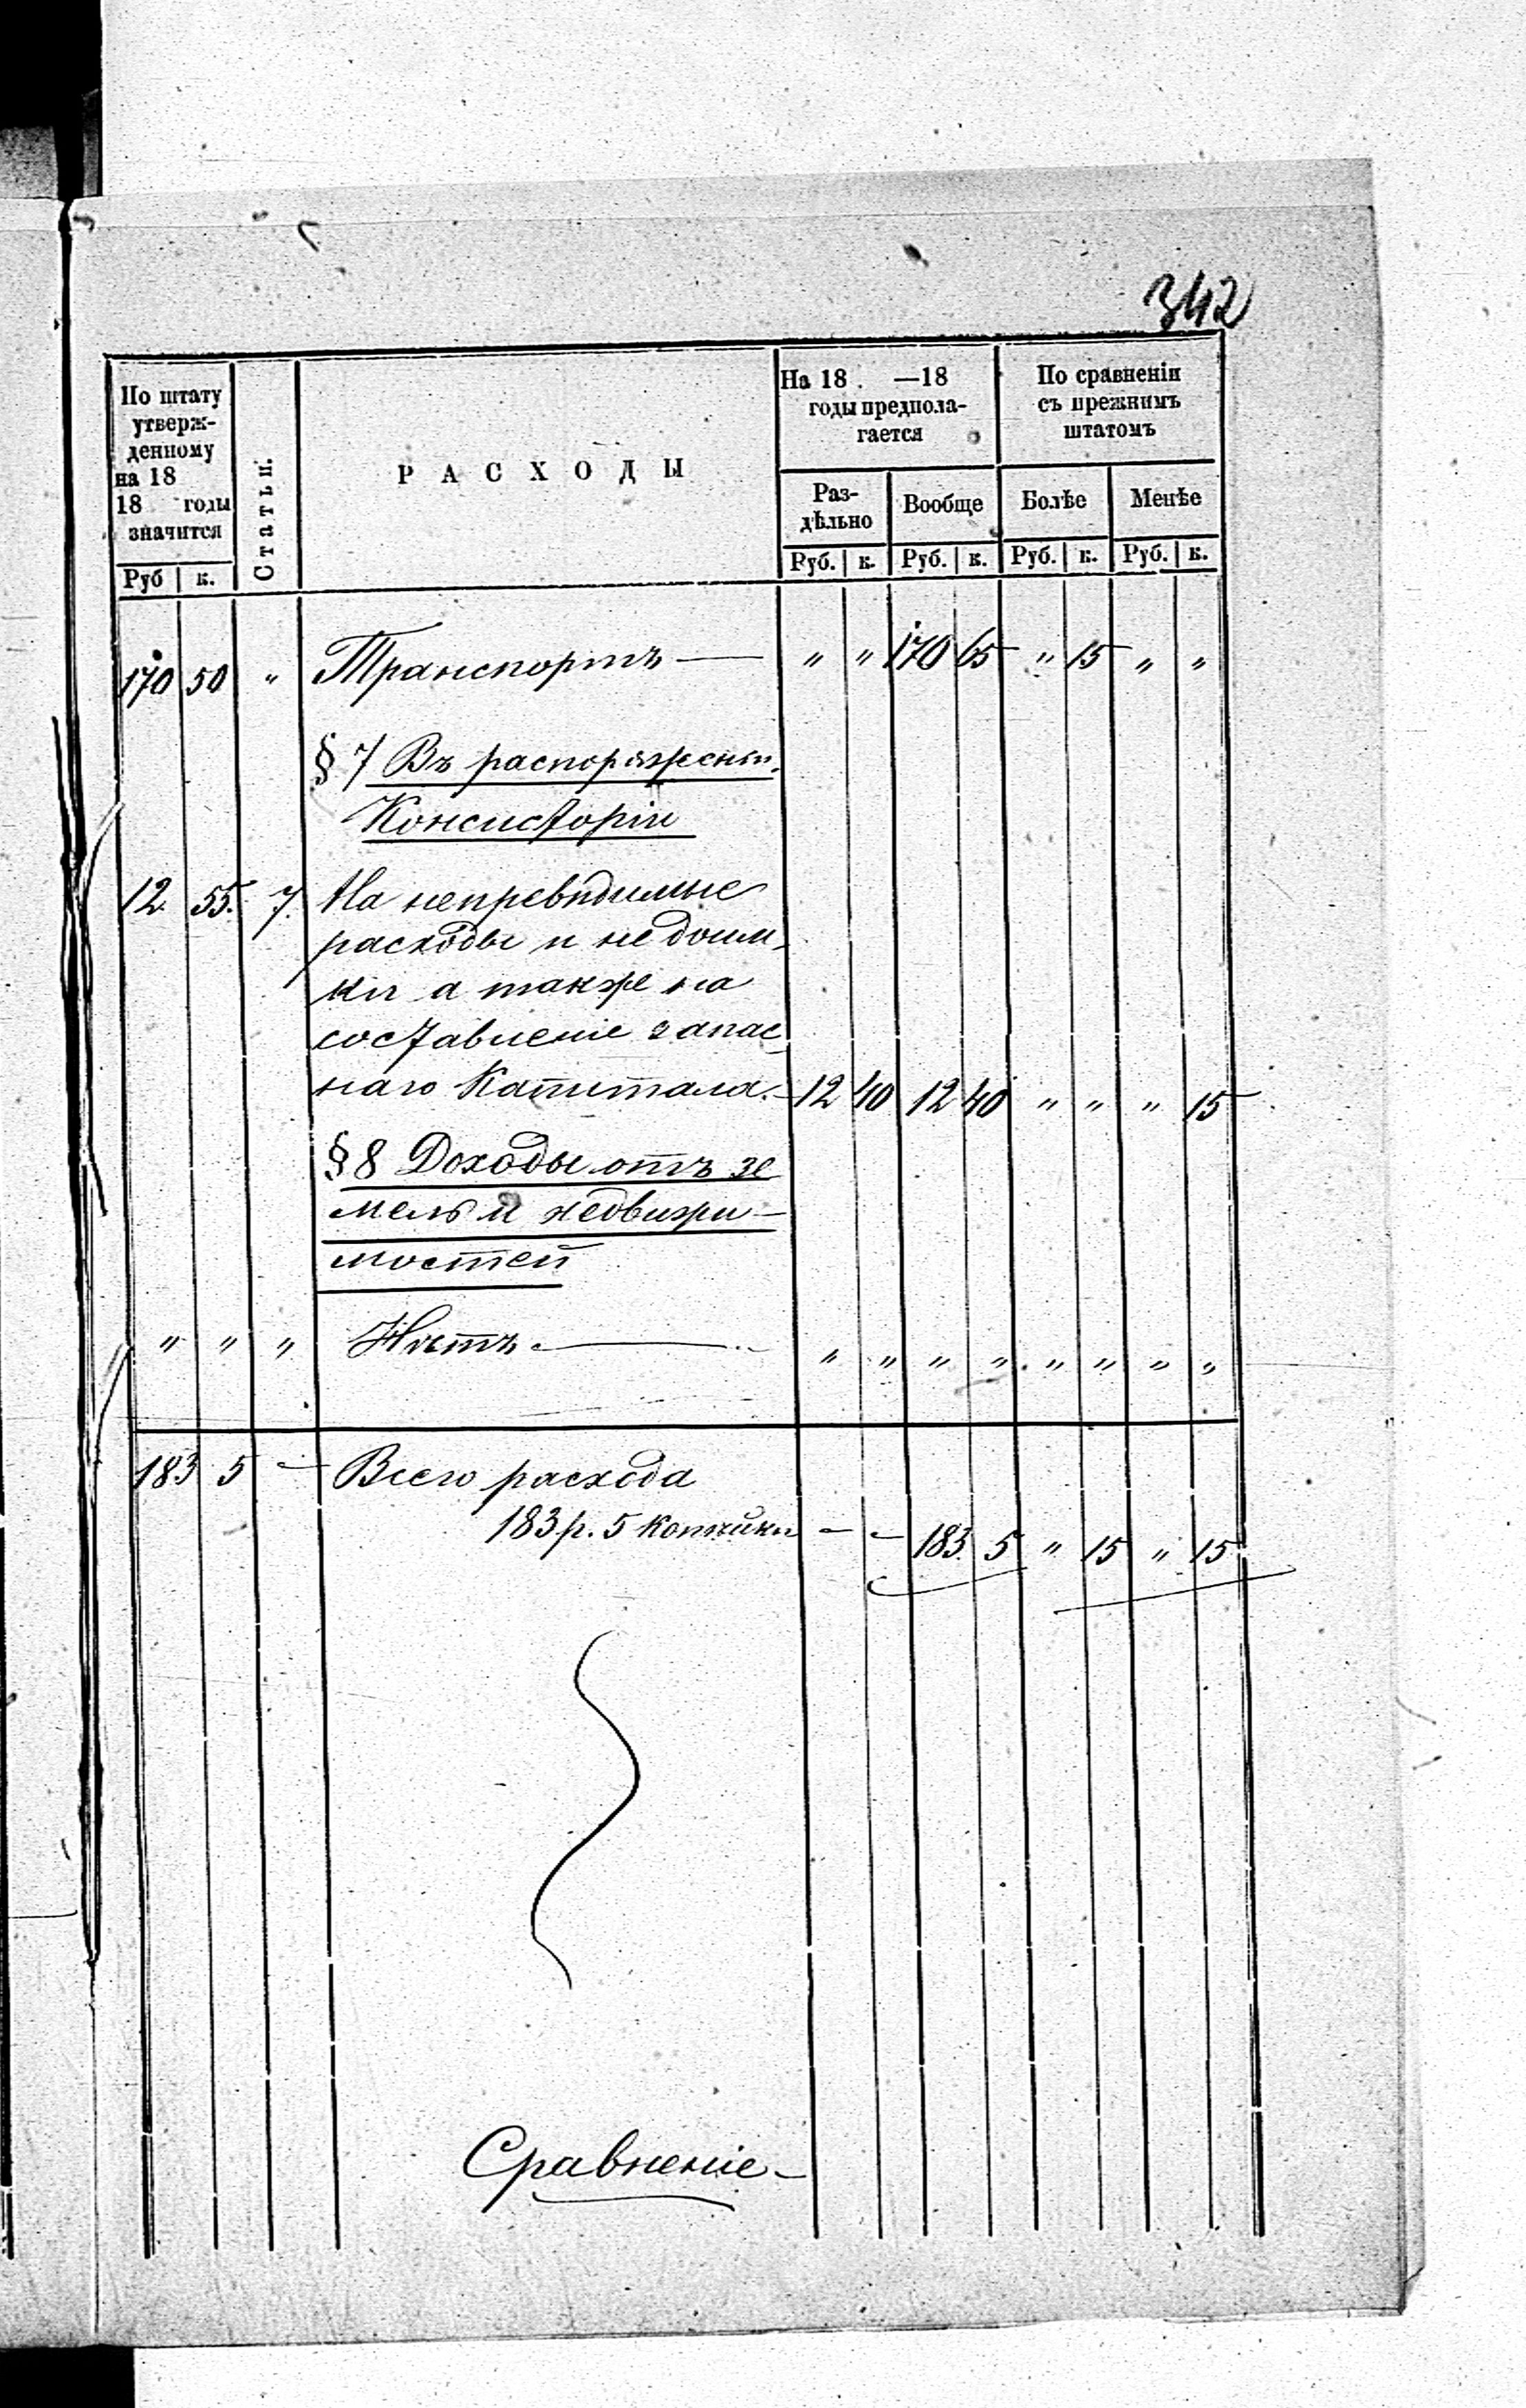 342
По штату утверж-
денному
на 18
18 годы
значится
Руб. к.
Статьи.
РАСХОДЫ
На 18 . —18
годы предпола-
гается
Раз-
дѣльно
Вообще
Руб. к. Руб. к.
По сравненіи
съ прежнимъ
штатомъ
Болѣе Менѣе
Руб. к. Руб. к.
170 50 " Транспортъ — " " 170 65 " 15 " "
§ 7 Въ распоряженіи
Консисторіи
12. 55. 7. На непревидимые
расходы и недоим-
ки а также на
составленіе запас-
наго Капитала. 12 40 12 40 " " " 15
§ 8 Доходы отъ зе
мель и недвижи-
мостей
" " " Нѣтъ — " " " " " " " "
183 5 — Всего расхода
183 р. 5 копѣйки — — 183. 5 " 15 " 15
Сравненіе